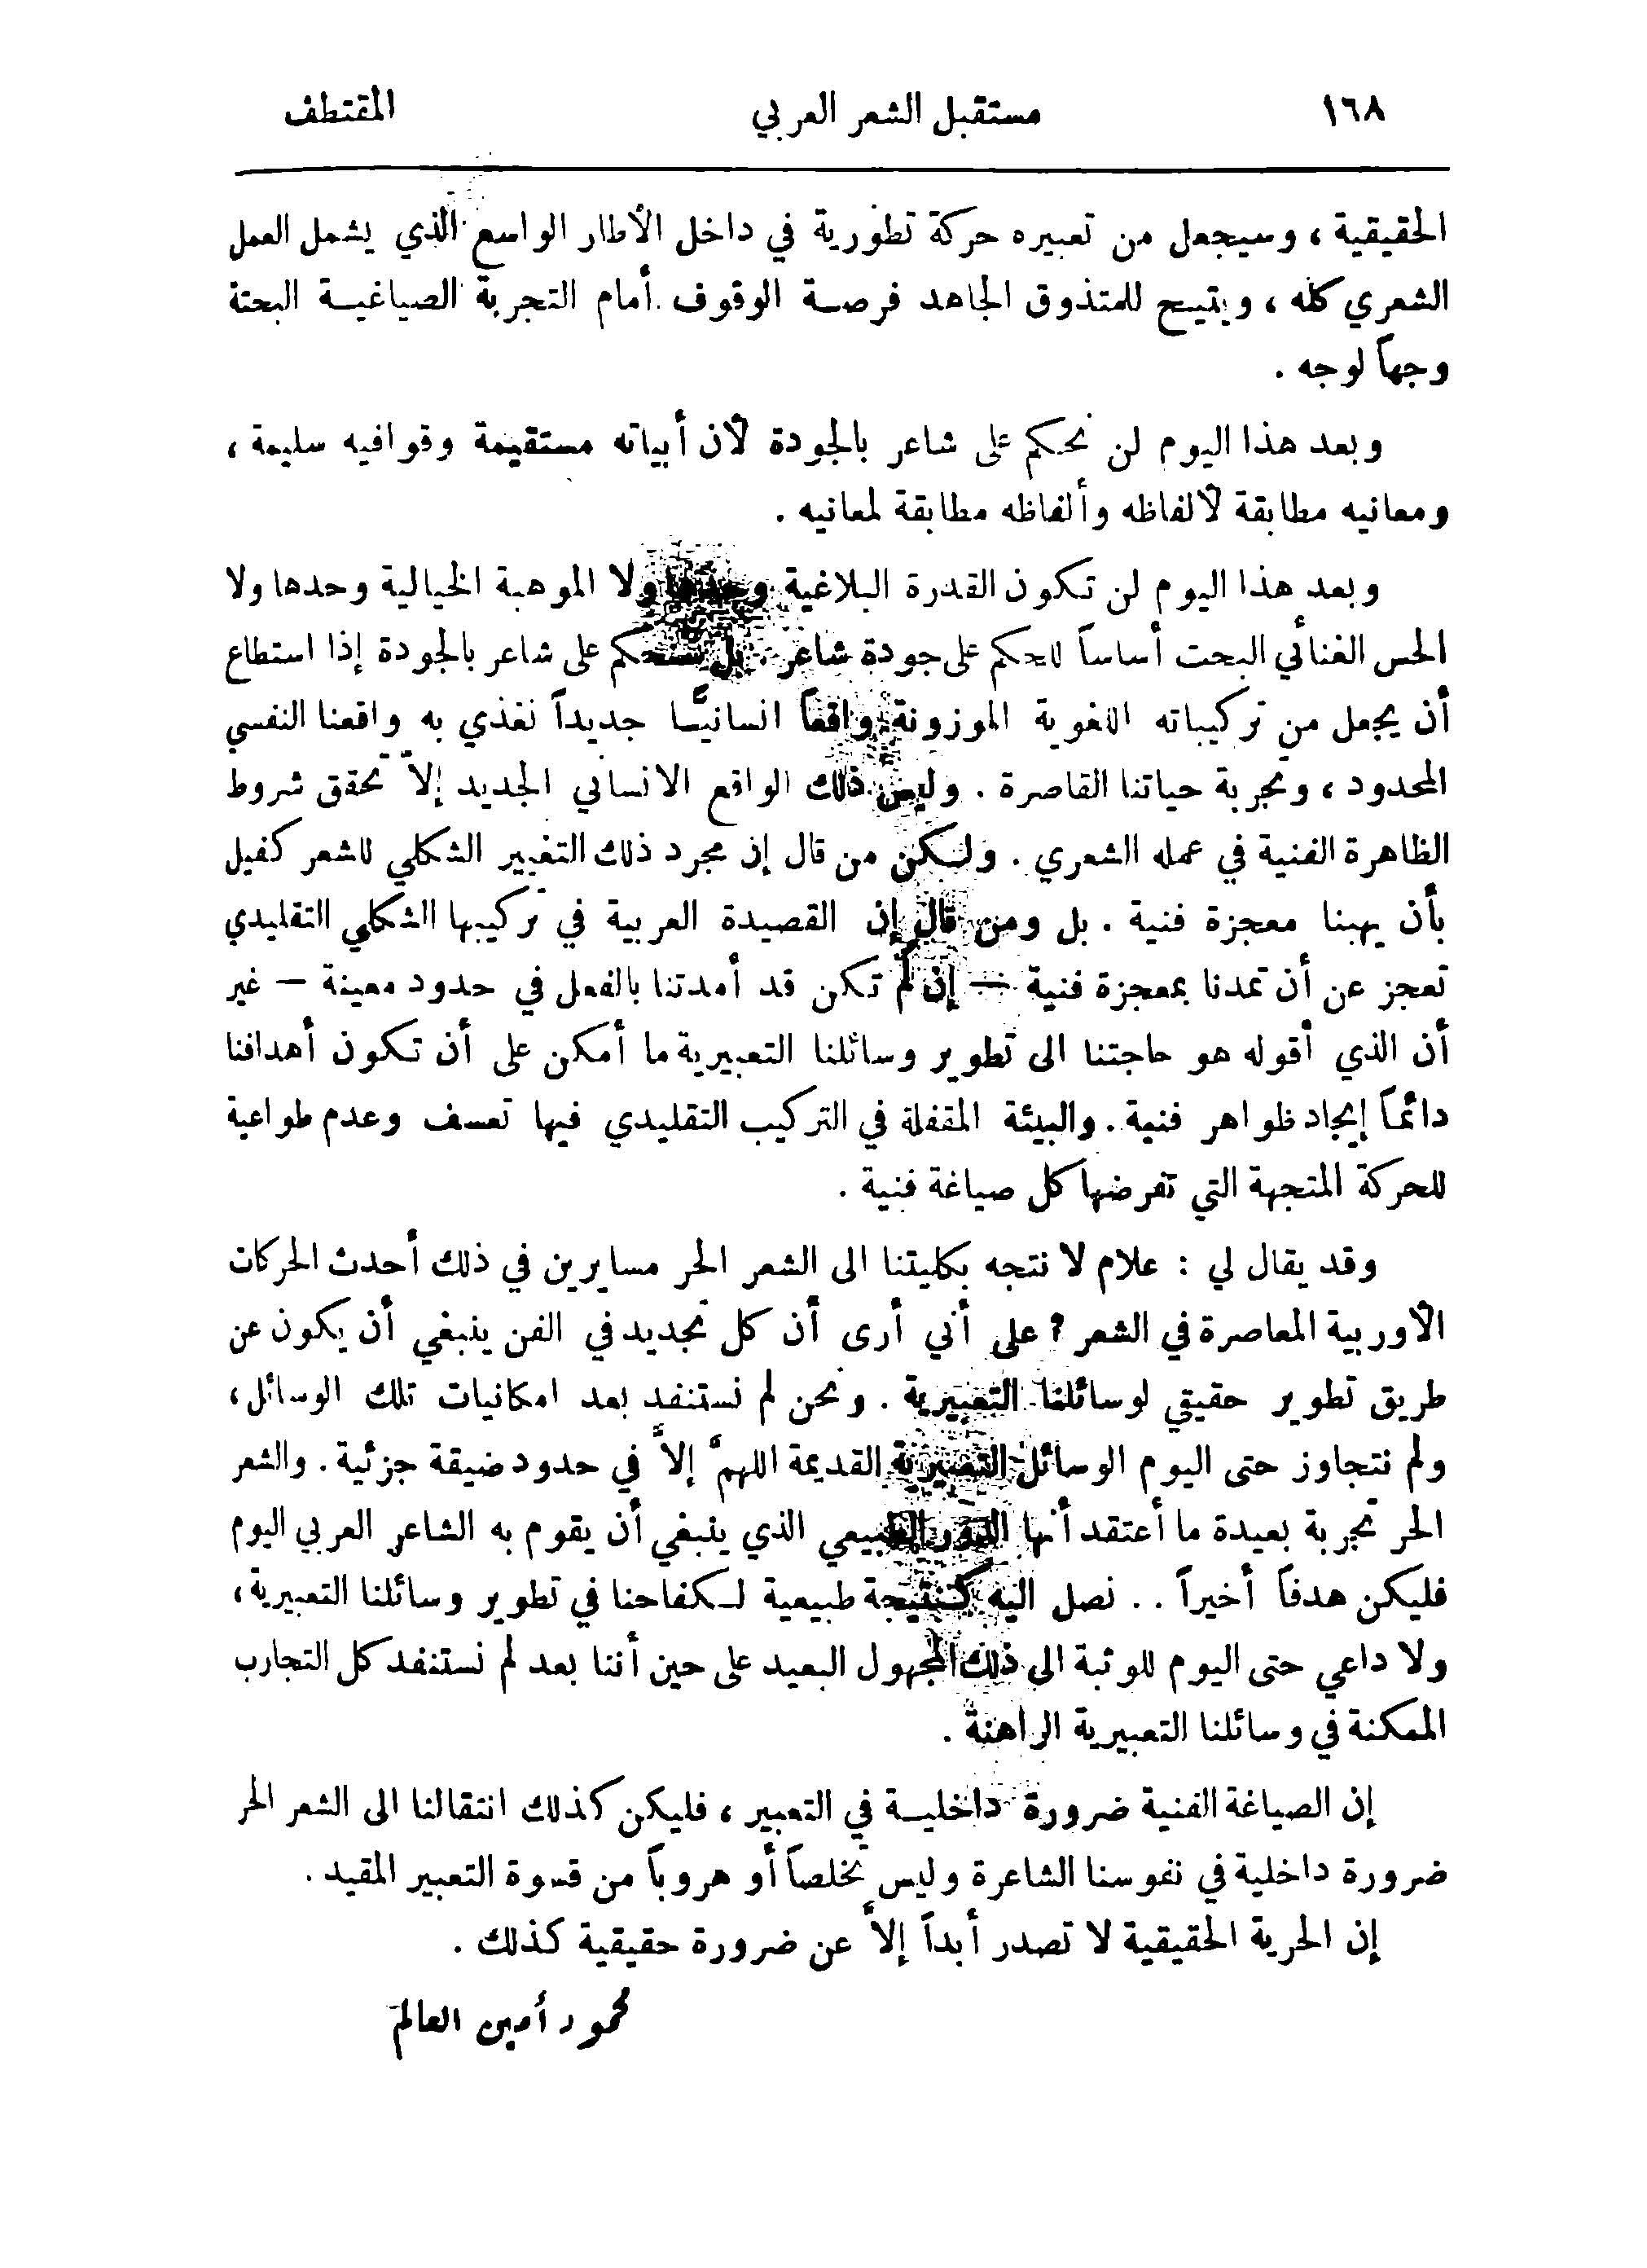 ١٦٨ مستقبل الشعر العربي المقتطف
الحقيقية ، وسيجعل من تعبيره حركة تطورية في داخل الأطار الواسع الذي يشمل العمل
الشعري كله ، ويتيح للمتذوق الجاهد فرصة الوقوف أمام التجربة الصياغية البحتة
وجهاً لوجه .
وبعد هذا اليوم لن نحكم على شاعر بالجودة لأن أبياته مستقيمة وقوافيه سليمة ،
ومعانيه مطابقة لألفاظه وألفاظه مطابقة لمعانيه .
وبعد هذا اليوم لن تكون القدرة البلاغية وحدها ولا الموهبة الخيالية وحدها ولا
الحس الغنائي البحت أساساً للحكم على جودة شاعر . بل سنحكم على شاعر بالجودة إذا استطاع
أن يجعل من تركيباته اللغوية الموزونة واقعاً انسانيًّا جديداً نغذي به واقعنا النفسي
المحدود ، وتجربة حياتنا القاصرة . وليس ذلك الواقع الانساني الجديد إلاّ تحقق شروط
الظاهرة الفنية في عمله الشعري . ولكن من قال إن مجرد ذلك التغيير الشكلي للشعر كفيل
بأن يهبنا معجزة فنية . بل ومن قال إن القصيدة العربية في تركيبها الشكلي التقليدي
تعجز عن أن تمدنا بمعجزة فنية — إن لم تكن قد أمدتنا بالفعل في حدود معينة — غير
أن الذي أقوله هو حاجتنا الى تطوير وسائلنا التعبيرية ما أمكن على أن تكون أهدافنا
دائماً إيجاد ظواهر فنية . والبيئة المقفلة في التركيب التقليدي فيها تعسف وعدم طواعية
للحركة المتجهة التي تفرضها كل صياغة فنية .
وقد يقال لي : علام لا نتجه بكليتنا الى الشعر الحر مسايرين في ذلك أحدث الحركات
الأوربية المعاصرة في الشعر ؟ على أني أرى أن كل تجديد في الفن ينبغي أن يكون عن
طريق تطوير حقيقي لوسائلنا التعبيرية . ونحن لم نستنفد بعد امكانيات تلك الوسائل ،
ولم نتجاوز حتى اليوم الوسائل القديمة اللهمَّ إلاَّ في حدود ضيقة جزئية . والشعر
الحر تجربة بعيدة ما أعتقد أنها الدور الطبيعي الذي ينبغي أن يقوم به الشاعر العربي اليوم
فليكن هدفاً أخيراً . . نصل اليه كنتيجة طبيعية لكفاحنا في تطوير وسائلنا التعبيرية ،
ولا داعي حتى اليوم للوثبة الى ذلك المجهول البعيد على حين أننا بعد لم نستنفد كل التجارب
الممكنة في وسائلنا التعبيرية الراهنة .
إن الصياغة الفنية ضرورة داخلية في التعبير ، فليكن كذلك انتقالنا الى الشعر الحر
ضرورة داخلية في نفوسنا الشاعرة وليس تخلصاً أو هروباً من قسوة التعبير المقيد .
إن الحرية الحقيقية لا تصدر أبداً إلاَّ عن ضرورة حقيقية كذلك .
محمود أمين العالم